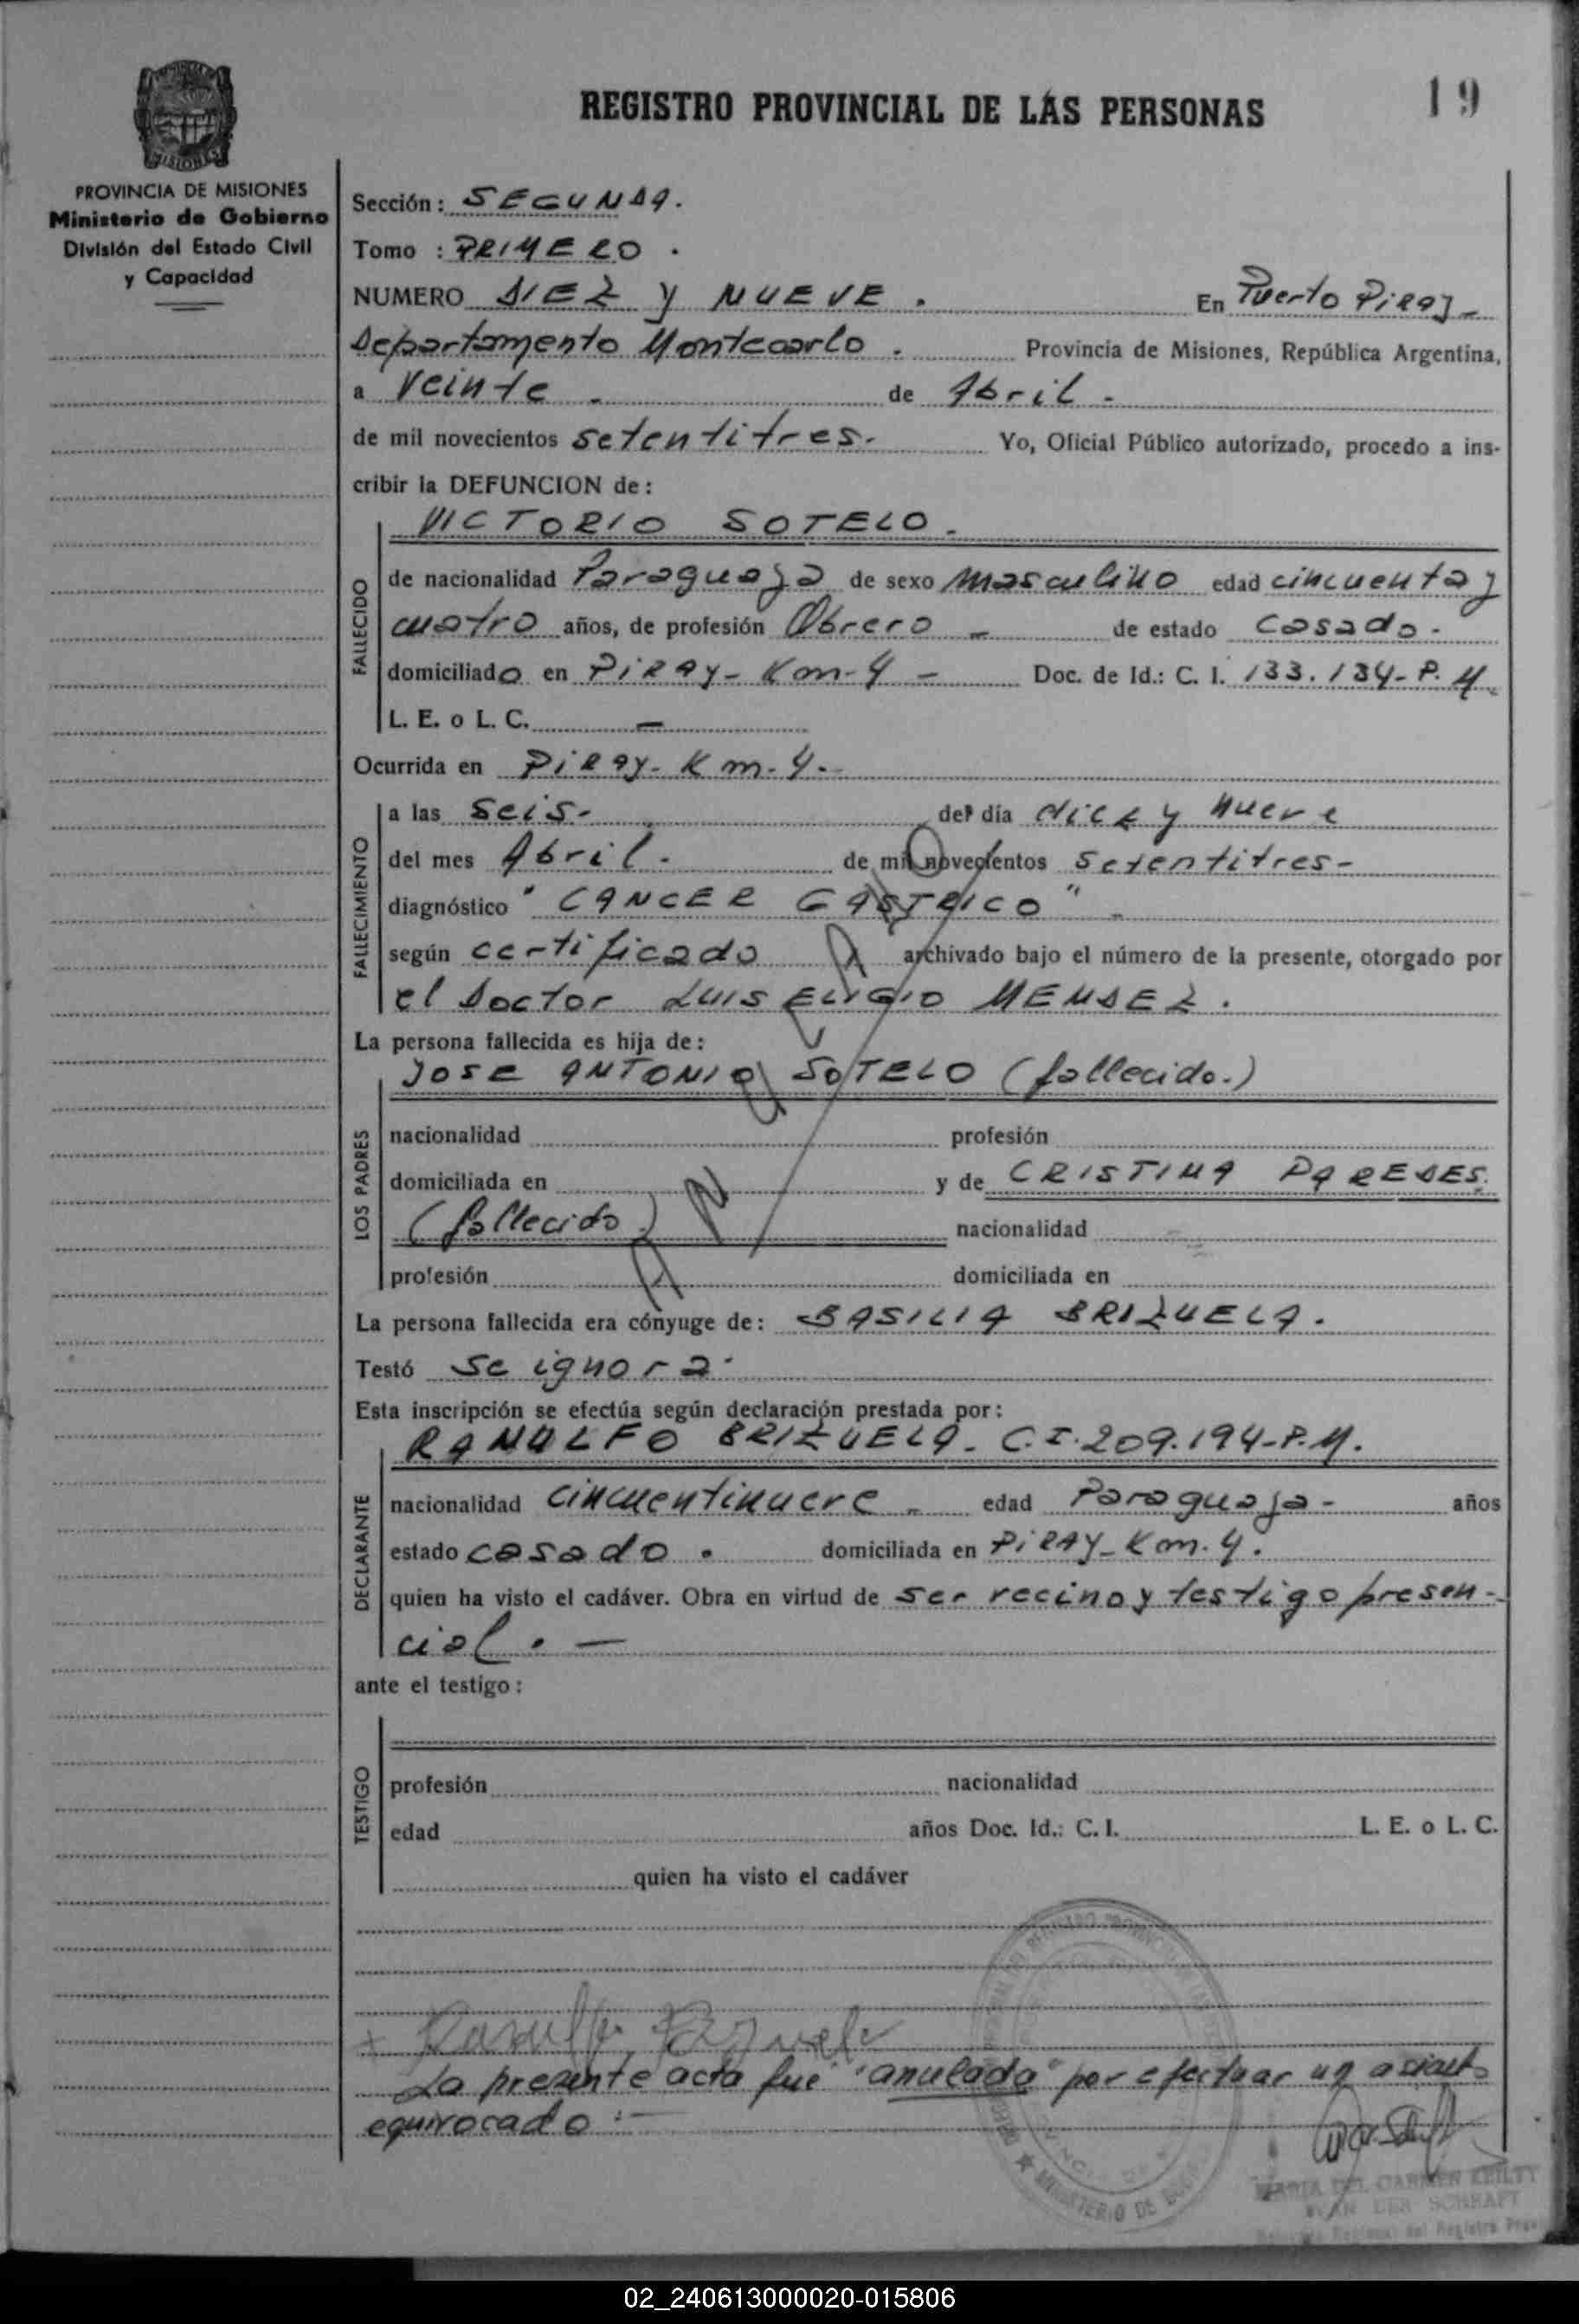 REGISTRO PROVINCIAL DE LAS PERSONAS
19
PROVINCIA DE MISIONES
Ministerio de Gobierno
División del Estado Civil
y Capacidad
Sección: SEGUNDA.
Tomo : PRIMERO.
NUMERO DIEZ y NUEVE. En Puerto Piray-
Departamento Montecarlo. Provincia de Misiones, República Argentina,
a Veinte. de Abril.
de mil novecientos setentitres. Yo, Oficial Público autorizado, procedo a ins-
cribir la DEFUNCION de:
VICTORIO SOTELO.
FALLECIDO
de nacionalidad Paraguaya de sexo Masculino edad cincuenta y
cuatro años, de profesión Obrero - de estado casado.
domiciliado en PiRAY- Km-4 - Doc. de Id.: C. I. 133.134-P. M.
L. E. o L. C. -
Ocurrida en PiRay- Km-4.
FALLECIMIENTO
a las seis- del día diez y nueve
del mes Abril. de mil novecientos setentitres-
diagnóstico "CANCER GASTRICO".
según certificado archivado bajo el número de la presente, otorgado por
el Doctor LUIS ELIGIO MENDEZ.
La persona fallecida es hija de:
JOSE ANTONIO SOTELO (fallecido.)
LOS PADRES
nacionalidad profesión
domiciliada en y de CRISTINA PAREDES.
(fallecido) nacionalidad
profesión domiciliada en
La persona fallecida era cónyuge de: BASILIA BRIZUELA.
Testó Se ignora.
Esta inscripción se efectúa según declaración prestada por:
RANULFO BRIZUELA- C.I. 209.194-P.M.
DECLARANTE
nacionalidad cincuentinueve - edad Paraguaya- años
estado casado. domiciliada en PiRAY-Km.4.
quien ha visto el cadáver. Obra en virtud de ser vecino y testigo presen-
cial. -
ante el testigo:
TESTIGO
profesión nacionalidad
edad años Doc. Id.: C. I. L. E. o L. C.
quien ha visto el cadáver
+ Ranulfo Brizuela
La presente acta fue "anulada" por efectuar un asiento
equivocado:-
MARIA DEL CARMEN
VAN DER SCHRAFT
del Registro
MINISTERIO DE
02_240613000020-015806